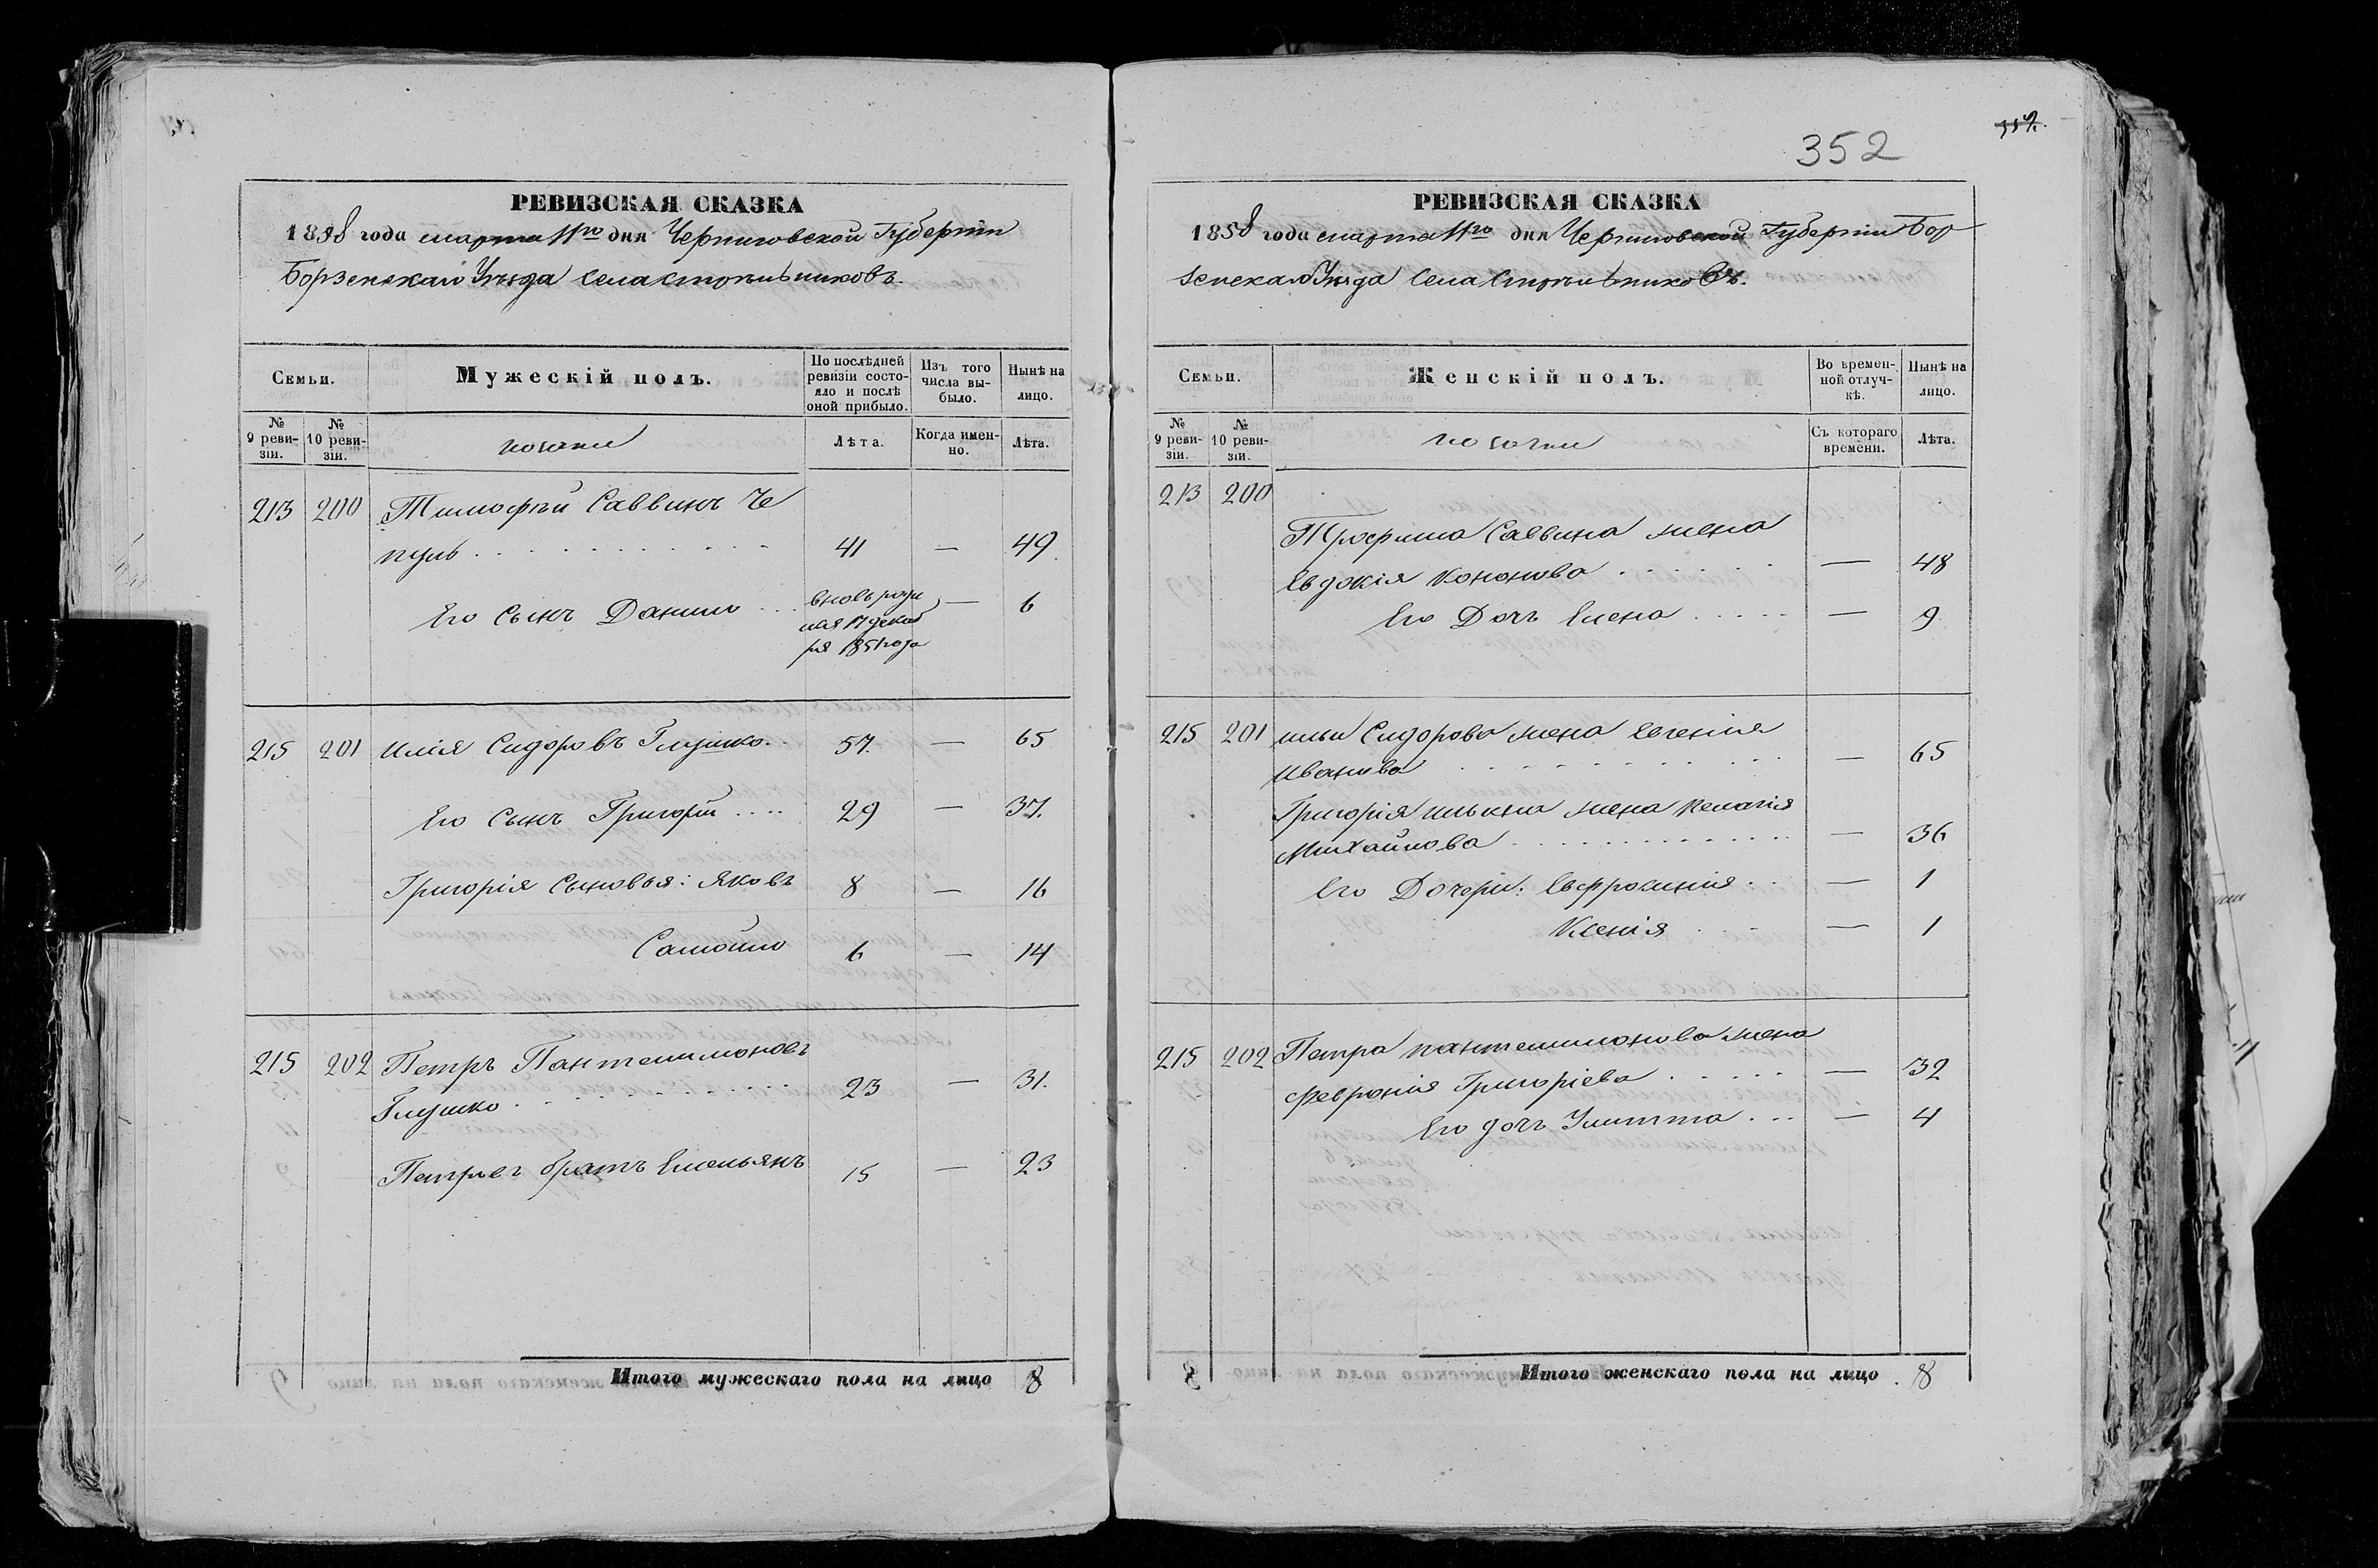 352
РЕВИЗСКАЯ СКАЗКА
1858 года марта 11го дня Черниговской Губерніи
Борзенскаго Уѣзда Села Стрѣльниковъ.
Семьи.
Мужескій полъ.
По послѣдней ревизіи состояло и послѣ оной прибыло.
Изъ того числа выбыло.
Нынѣ на лицо.
№ 9 ревизіи.
№ 10 ревизіи.
козаки
Лѣта.
Когда именно.
Лѣта.
213 200 Тимофѣй Саввинъ Че
пуль 41 — 49
Его Сынъ Данило вновь рожд — 6
ря 1851 года
215 201 Илія Сидоровъ Глушко 57. — 65
Его Сынъ Григорій 29 — 37.
Григорія Сыновья: Яковъ 8 — 16
Самойло 6 — 14
215 202 Петръ Пантелимоновъ
Глушко 23 — 31.
Петровъ братъ Емельянъ 15 — 23
Итого мужескаго пола на лицо 8
РЕВИЗСКАЯ СКАЗКА
1858 года марта 11го дня Черниговской Губерніи Бор
зенскаго Уѣзда Села Стрѣльниковъ.
Семьи.
Женскій полъ.
Во временной отлучкѣ.
Нынѣ на лицо.
№ 9 ревизіи.
№ 10 ревизіи.
козачки
Съ котораго времени.
Лѣта.
213 200
Саввина жена
Евдокія Кононова — 48
Его Дочь Елена — 9
215 201 Ильи Сидорова жена Евгенія
Иванова — 65
Григорія Ильина жена Пелагія
Михайлова — 36
Его Дочери: Евфросинія — 1
Ксенія — 1
215 202 Петра Пантелимонова жена
Февронія Григоріева — 32
Его дочь Улитта — 4
Итого женскаго пола на лицо 8